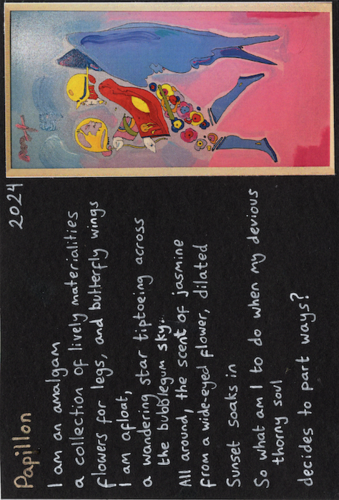 Papillon 2024
I am an amalgam
a collection of lively materialities
flowers for legs, and butterfly wings
I am afloat,
a wandering star tiptoeing across
the bubblegum sky.
All around, the scent of jasmine
from a wide-eyed flower, dilated
Sunset soaks in
So what am I to do when my devious
thorny soul
decides to part ways?